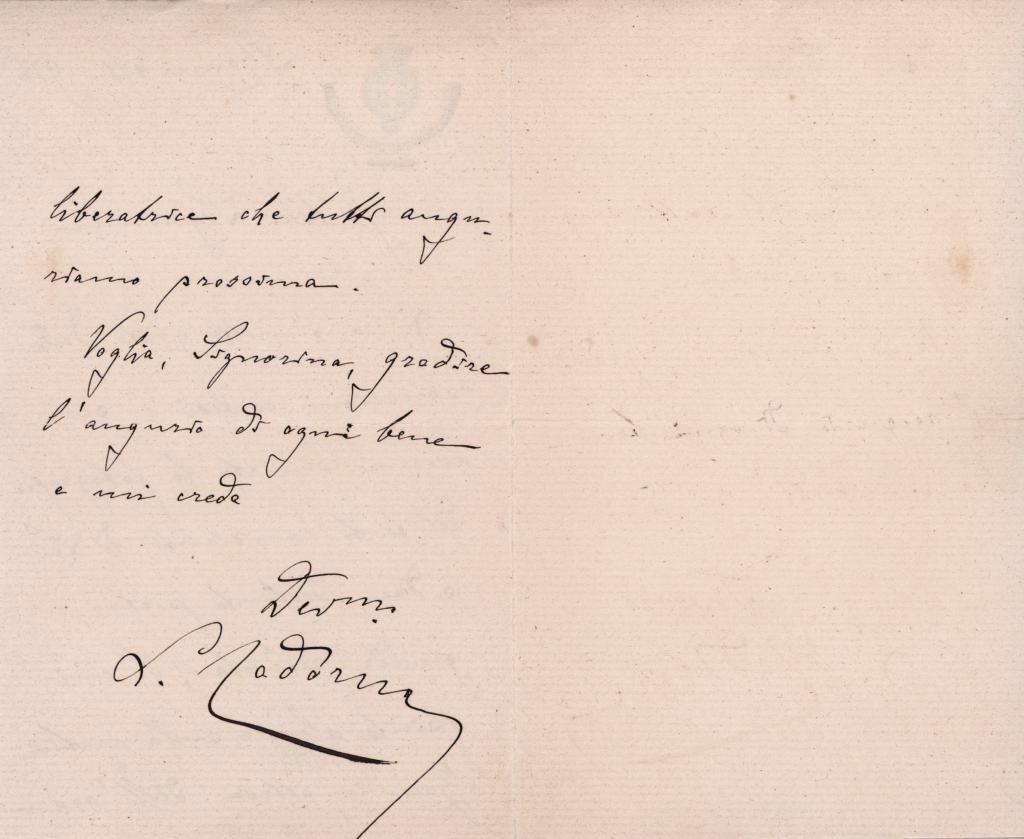 liberatrice che tutti augu-
riamo prossima.
Voglia, Signorina, gradire
l'augurio di ogni bene
e mi creda
Devm.
L. Cadorna